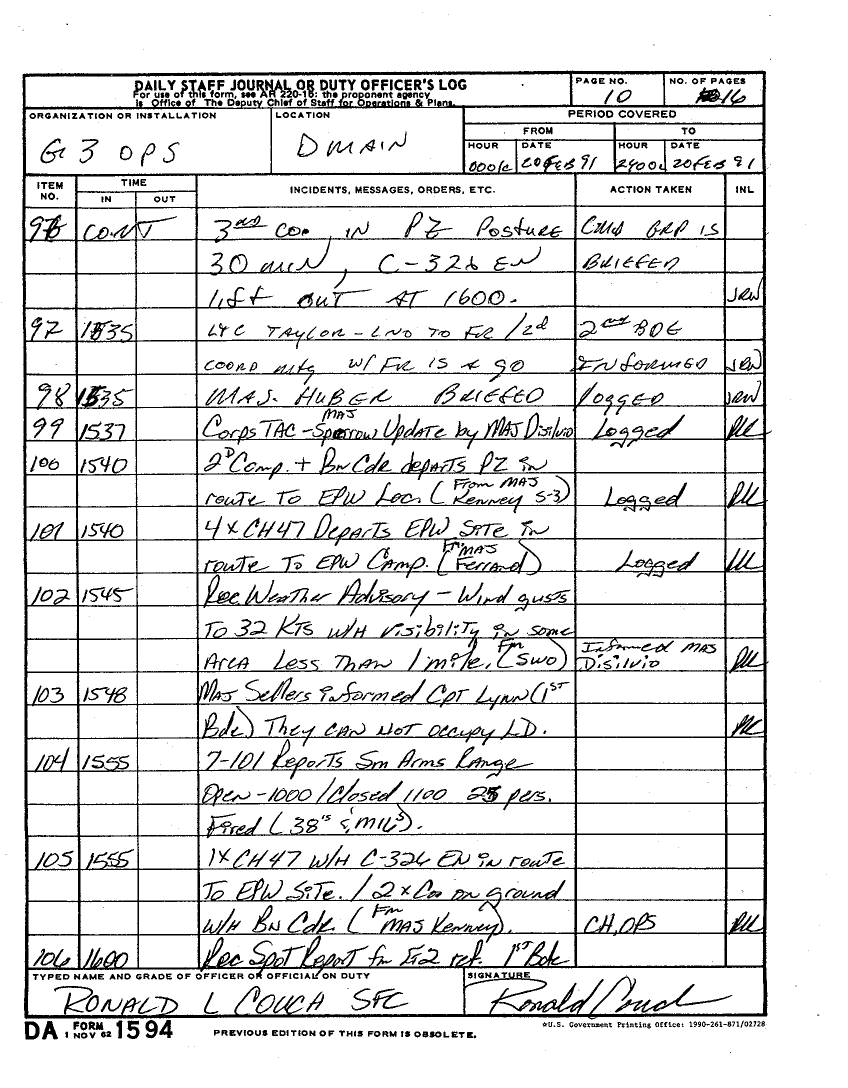 DAILY STAFF JOURNAL OR DUTY OFFICER'S LOG
For use of this form, see AR 220-15: the proponent agency
is Office of The Deputy Chief of Staff for Operations & Plans.
PAGE NO.
10
NO. OF PAGES
16
ORGANIZATION OR INSTALLATION
G3 OPS
LOCATION
DMAIN
PERIOD COVERED
FROM
TO
HOUR
DATE
HOUR
DATE
20 FEB 91
2400
20 FEB 91
ITEM NO.
TIME
IN
OUT
INCIDENTS, MESSAGES, ORDERS, ETC.
ACTION TAKEN
INL
96 CONT 3RD CO IN PZ POSTURE CMD GRP IS
30 MIN, C-326 EN BRIEFED
lift out AT 1600. JRW
97 1535 LTC TAYLOR - LNO TO FR / 2d 2nd BDE
COORD mtg W/ FR IS a go INFORMED JRW
98 1535 MAJ. HUBER BRIEFED logged JRW
99 1537 Corps TAC - MAJ Sparrow Update by MAJ Disilvio Logged
100 1540 2D Comp. + Bn Cdr departs PZ in
route To EPW Loc. (From MAJ Kenney S-3) Logged
101 1540 4 x CH47 Departs EPW Site in
route To EPW Camp. (Fm MAJ Ferrand) Logged
102 1545 Rec Weather Advisory - Wind gusts
To 32 KTS W/H visibility in some
Area Less Than 1 mile. (Fm SWO) Informed MAJ Disilvio
103 1548 MAJ Sellers informed Cpt Lynn (1ST
Bde) They CAN NOT occupy LD.
104 1555 7-101 Reports Sm Arms Range
Open - 1000 / Closed 1100 25 pers.
Fired (38's & M16's).
105 1555 1 x CH47 W/H C-326 EN in route
To EPW Site. / 2 x Co on ground
W/H Bn Cdr. (Fm MAJ Kenney). CH, OPS
106 1600 Rec Spot Report fm G2 ref. 1ST Bde
TYPED NAME AND GRADE OF OFFICER OR OFFICIAL ON DUTY
RONALD L COUCH SFC
SIGNATURE
Ronald Couch
DA FORM 1 NOV 62 1594
PREVIOUS EDITION OF THIS FORM IS OBSOLETE.
*U.S. Government Printing Office: 1990-261-871/02728